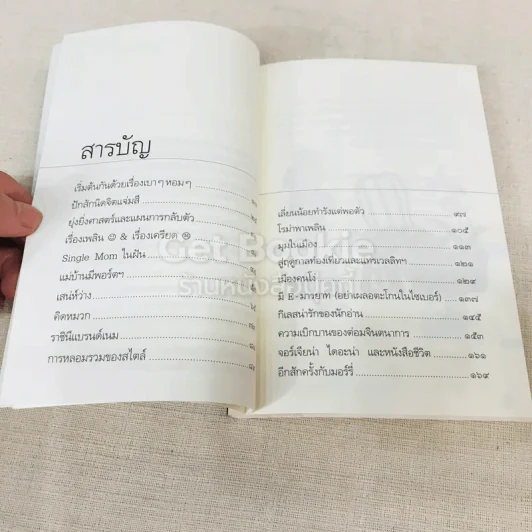 สารบัญ
เริ่มต้นกันด้วยเรื่องเบาๆ หอมๆ
ปักสักนิดจิตแจ่มสี
ยุ่งยิ่งศาสตร์และแผนการกลับตัว
เรื่องเพลิน ☺ & เรื่องเครียด ☹
Single Mom ในฝัน
แม่บ้านมีพอร์ตฯ
เสน่ห์ว่าง
คิดหมวก
ราชินีแบรนด์เนม
การหลอมรวมของสไตล์
เลี่ยนน้อยทำรังแต่พอตัว ๙๗
โรม่าพาเพลิน ๑๐๕
มุมในเมือง ๑๑๓
สู่ฤดูกาลท่องเที่ยวและแทรเวลลิทฯ ๑๒๑
เมืองคนโง่ ๑๒๙
มี E-มารยาท (อย่าเผลอตะโกนในไซเบอร์) ๑๓๗
กิเลสน่ารักของนักอ่าน ๑๔๕
ความเบิกบานของต่อมจินตนาการ ๑๕๓
จอร์เจียน่า ไดอะน่า และหนังสือชีวิต ๑๖๑
อีกสักครั้งกับมอร์รี่ ๑๖๙
Get Bookie